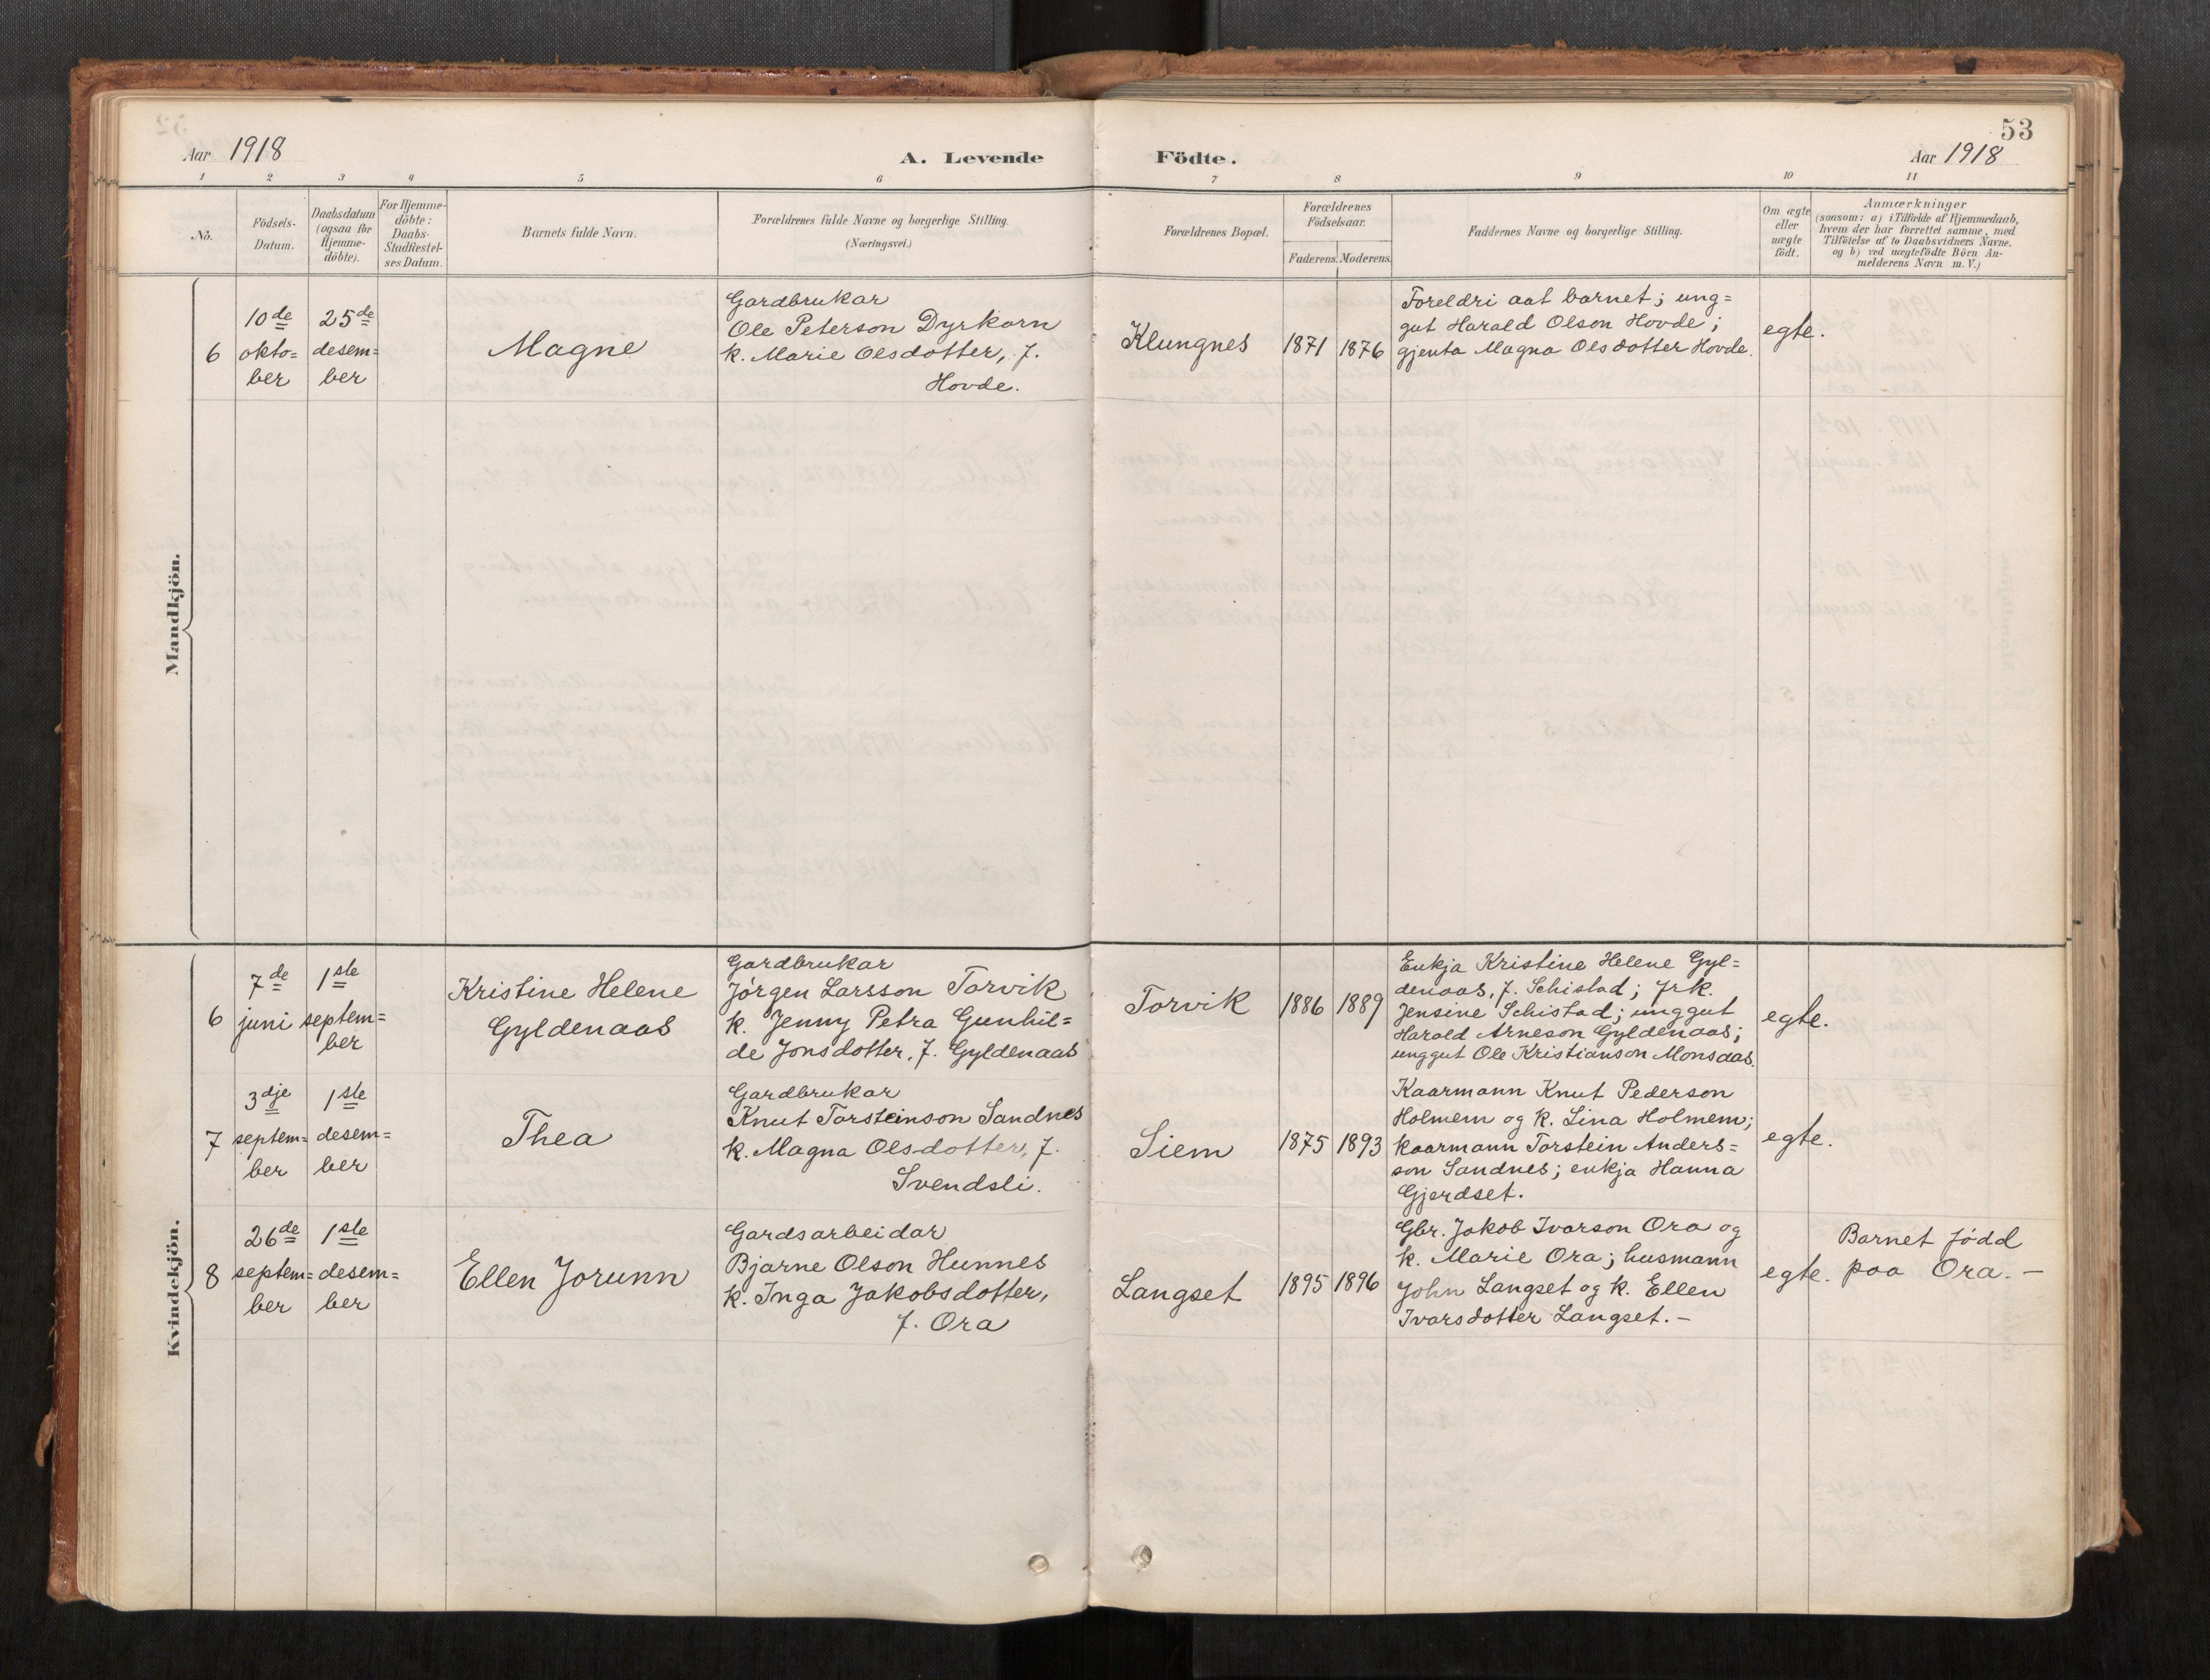 53
Aar 1918
A. Levende
Födte.
Aar 1918
1 2 3 4 5 6 7 8 9 10 11
No.
Födsels-
Datum.
Daabsdatum
(ogsaa for
Hjemme-
döbte).
For Hjemme-
döbte:
Daabs-
Stadfæstel-
ses Datum.
Barnets fulde Navn.
Forældrenes fulde Navne og borgerlige Stilling.
(Næringsvei.)
Forældrenes Bopæl.
Forældrenes
Födselsaar.
Faderens. Moderens.
Faddernes Navne og borgerlige Stilling.
Om ægte
eller
uægte
födt.
Anmærkninger
(saasom: a) i Tilfælde af Hjemmedaab,
hvem der har forrettet samme, med
Tilföielse af to Daabsvidners Navne,
og b) ved uægtefödte Börn An-
melderens Navn m. V.)
Mandkjön.
6
10de
okto=
ber
25de
desem=
ber
Magne
Gardbrukar
Ole Peterson Dyrkorn
k. Marie Olsdotter, f.
Hovde.
Klungnes
1871
1876
Foreldri aat barnet; ung=
gut Harald Olson Hovde;
gjenta Magna Olsdotter Hovde.
egte.
Kvindekjön.
6
7de
juni
1ste
septem=
ber
Kristine Helene
Gyldenaas
Gardbrukar
Jørgen Larsson Torvik
k. Jenny Petra Gunhil=
de Jonsdotter, f. Gyldenaas
Torvik
1886
1889
Enkja Kristine Helene Gyl=
denaas, f. Schistad; frk.
Jensine Schistad; unggut
Harald Arneson Gyldenaas;
unggut Ole Kristianson Monsaas.
egte.
7
3dje
septem=
ber
1ste
desem=
ber
Thea
Gardbrukar
Knut Torsteinson Sandnes
k. Magna Olsdotter, f.
Svendsli.
Siem
1875
1893
Kaarmann Knut Pederson
Holmem og k. Lina Holmem;
kaarmann Torstein Anders=
son Sandnes; enkja Hanna
Gjerdset.
egte.
8
26de
septem=
ber
1ste
desem=
ber
Ellen Jorunn
Gardsarbeidar
Bjarne Olson Hunnes
k. Inga Jakobsdotter,
f. Ora
Langset
1895
1896
Gbr. Jakob Ivarson Ora og
k. Marie Ora; husmann
John Langset og k. Ellen
Ivarsdotter Langset.-
egte.
Barnet fødd
paa Ora.-